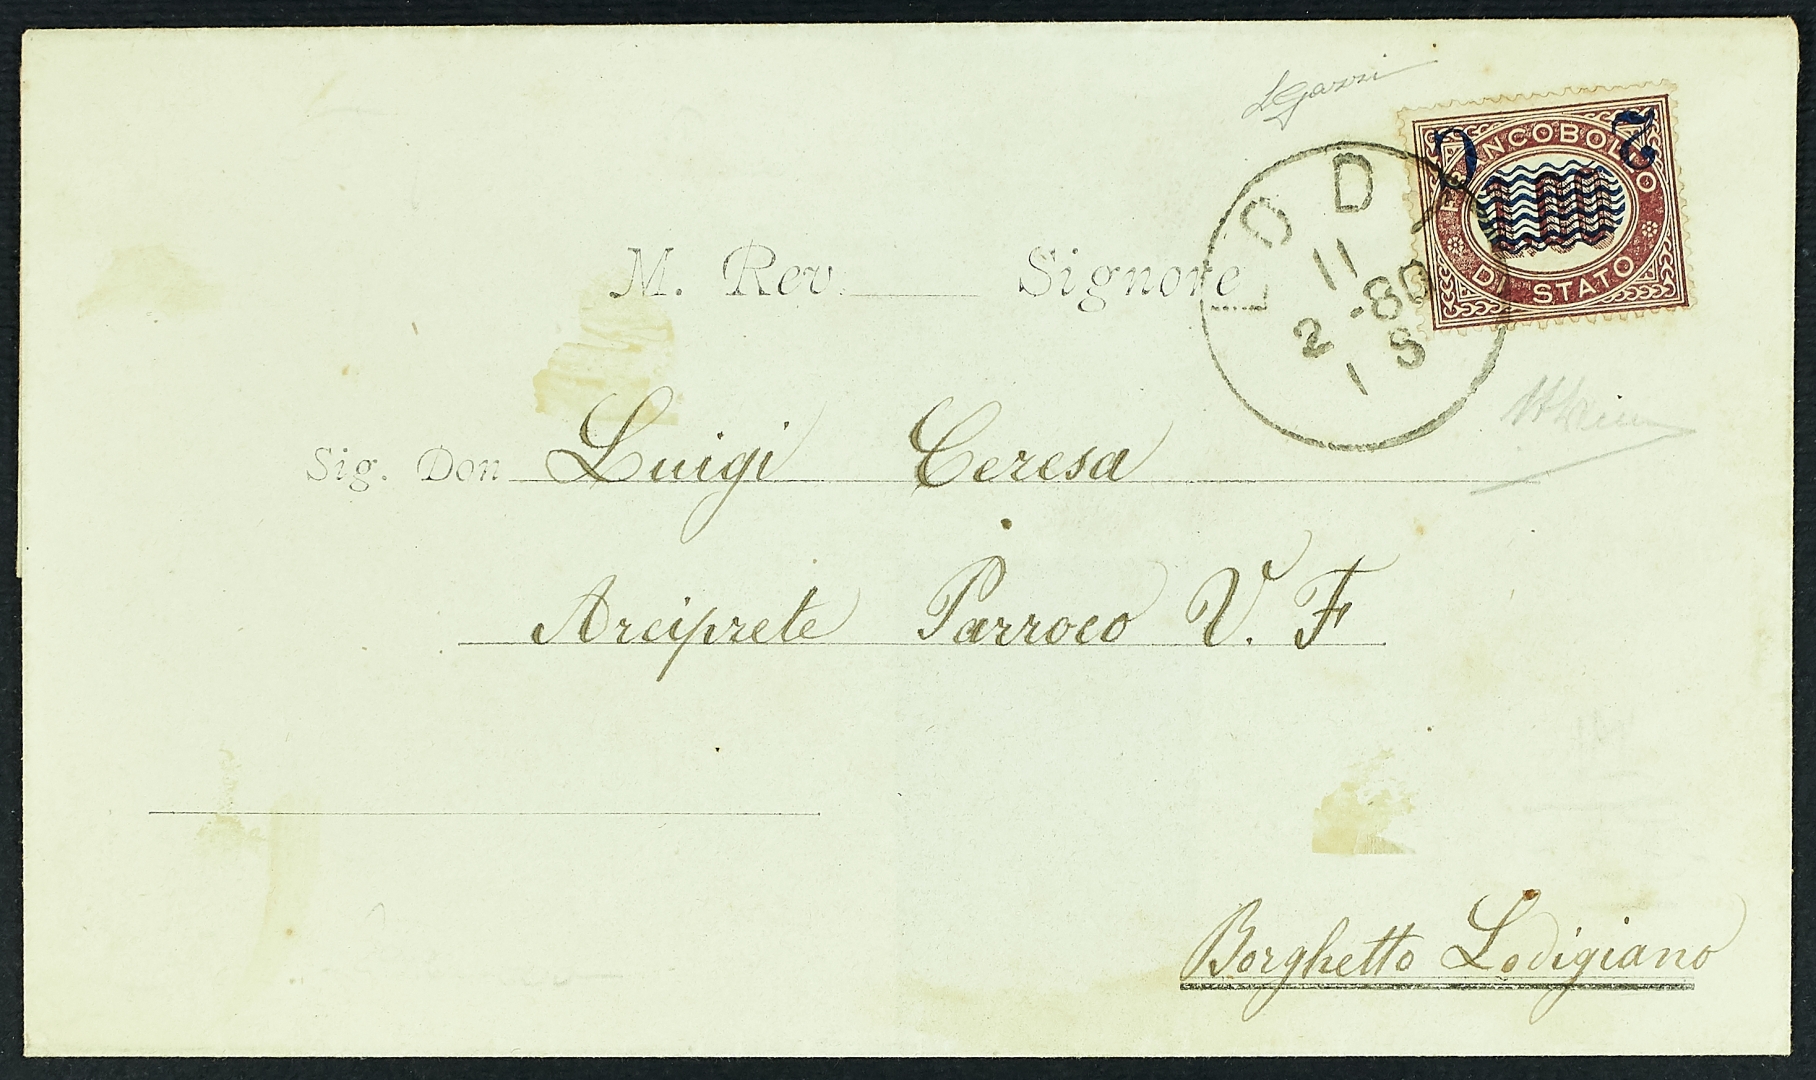 FRANCOBOLLO
2 C
DI STATO
LODI
11
2 -80
1 S
M. Rev. Signore
Sig. Don Luigi Ceresa
Arciprete Parroco V. F
Borghetto Lodigiano